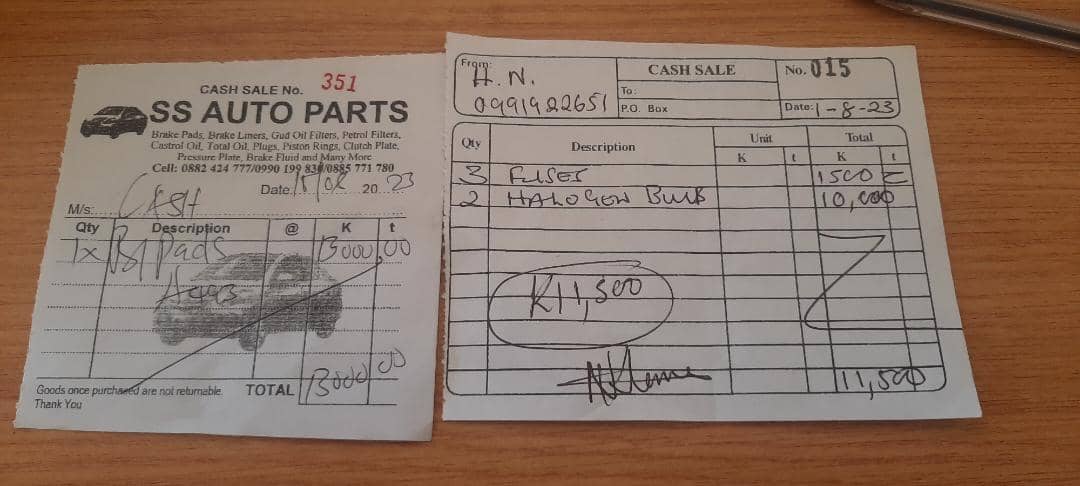 CASH SALE No. 351
SS AUTO PARTS
Brake Pads, Brake Liners, Gud Oil Filters, Petrol Filters,
Castrol Oil, Total Oil, Plugs, Piston Rings, Clutch Plate,
Pressure Plate, Brake Fluid and Many More
Cell: 0882 424 777/0990 199 830/0885 771 780
Date. 20 23
M/s: CASH
Qty Description @ K t
1x B/Pads 13000,00
Goods once purchased are not returnable TOTAL 13000 00
Thank You
From: H.N.
0991922651
CASH SALE
To:
P.O. Box
No. 015
Date: 1-8-23
Qty Description Unit Total
K t K t
3 FUSES 1500
2 HALOGEN BULB 10,000
K11,500
11,500